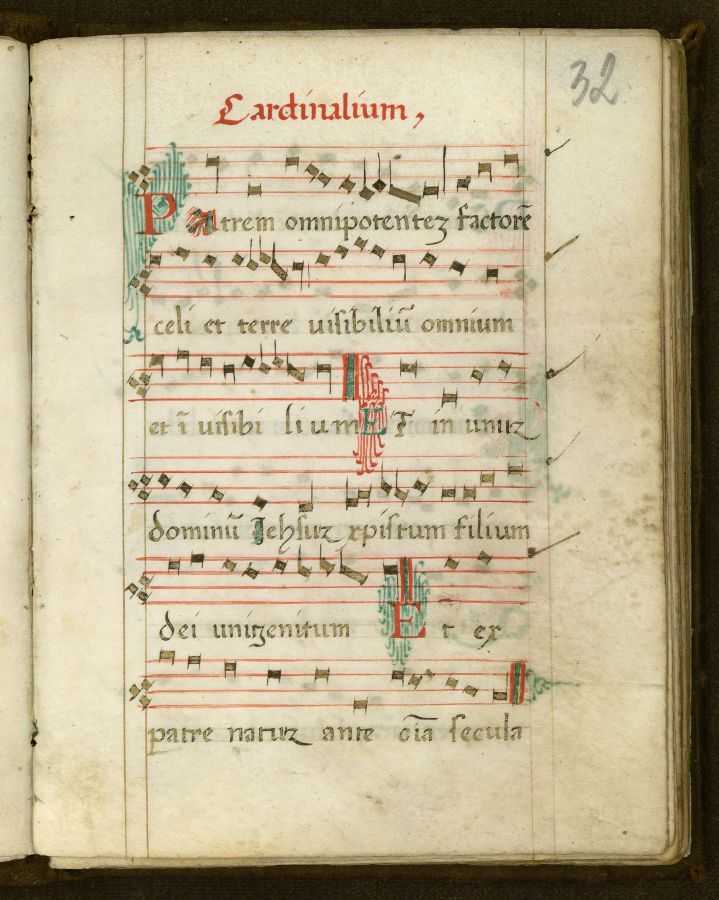 32
Cardinalium,
Patrem omnipotentez factorē
celi et terre uisibiliū omnium
et ī uisibi lium ET in unuz
dominū Jehsuz xpistum filium
dei unigenitum Et ex
patre natuz ante oīa secula